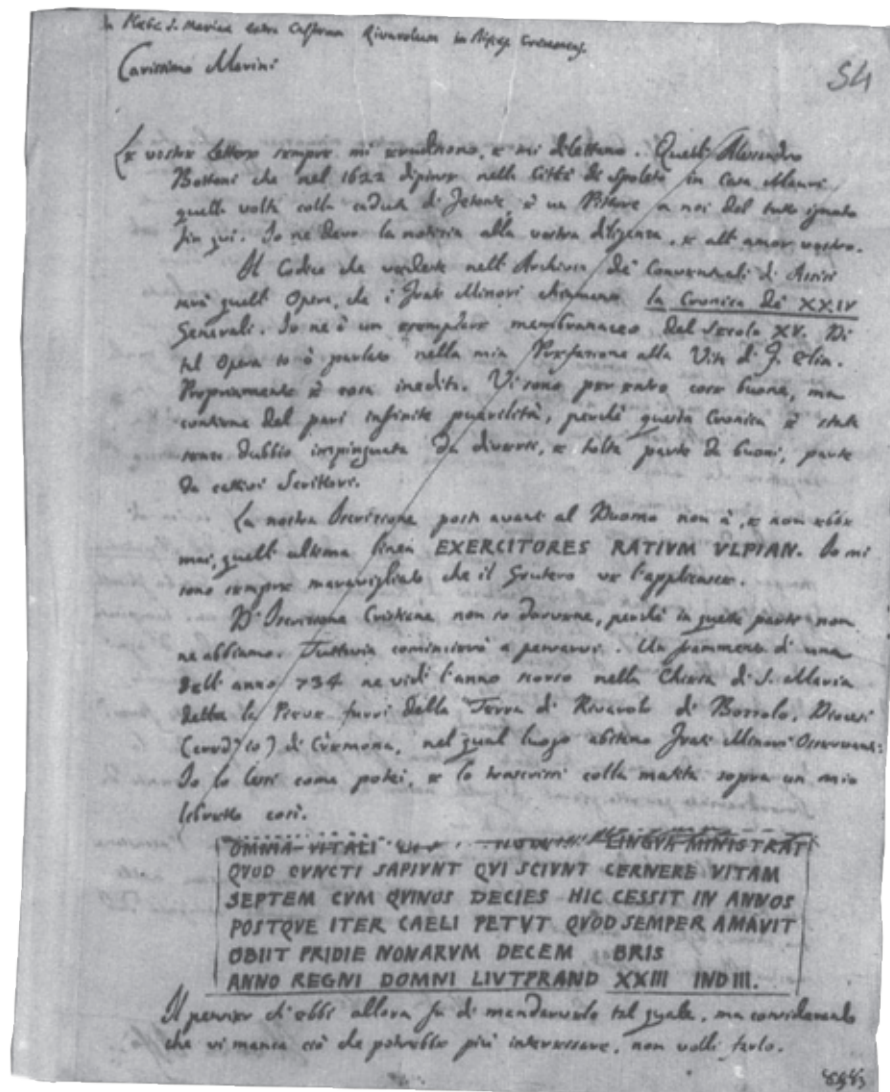 Carissimo Marini
54
Le vostre lettere sempre mi erudiscono, e mi dilettano. Quell' Alessandro
Bottoni che nel 1622 dipinse nella Città di Spoleto in Casa Mauri
quella volta colla caduta di Fetonte, è un Pittore a noi del tutto ignoto
fin qui. Io ne devo la notizia alla vostra diligenza, e all' amor vostro.
Il Codice che vedeste nell' Archivio de' Conventuali di Assisi
sarà quell' Opera, che i Frati Minori chiamano la Cronica de' XXIV
Generali. Io ne ò un esemplare membranaceo del Secolo XV. Di
tal Opera io ò parlato nella mia Prefazione alla Vita di F. Elia.
Propriamente è cosa inedita. Vi sono per entro cose buone, ma
contiene del pari infinite puerilità, perchè questa Cronica è stata
senza dubbio impinguata da diversi, e tolta parte da buoni, parte
da cattivi Scrittori.
La nostra Iscrizione posta avanti al Duomo non à, e non ebbe
mai, quell' ultima linea EXERCITORES RATIVM VLPIAN. Io mi
sono sempre maravigliato che il Grutero ve l'applicasse.
D' Iscrizione Cristiana non so darvene, perchè in queste parti non
ne abbiamo. Tuttavia comincierò a pensarvi. Un frammento di una
dell' anno 734 ne vidi l'anno scorso nella Chiesa di S. Maria
detta la Pieve fuori della Terra di Rivarolo di Bozzolo, Diocesi
(cred' io) di Cremona, nel qual luogo abitano Frati Minori Osservanti:
Io lo lessi come potei, e lo trascrissi colla matita sopra un mio
libretto così.
OMNIA VITALI LINGVA MINISTRAT
QVOD CVNCTI SAPIVNT QVI SCIVNT CERNERE VITAM
SEPTEM CVM QVINOS DECIES HIC CESSIT IN ANNOS
POSTQVE ITER CAELI PETVT QVOD SEMPER AMAVIT
OBIIT PRIDIE NONARVM DECEM BRIS
ANNO REGNI DOMNI LIVTPRAND XXIII IND III.
Il pensier ch'ebbi allora fu di mandarvelo tal quale, ma considerando
che vi manca ciò che potrebbe più interessare, non volli farlo.